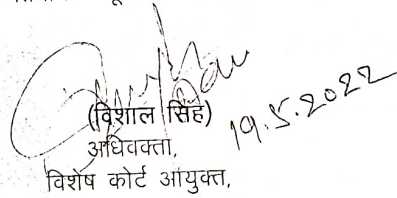 (विशाल सिंह)
19.5.2022
अधिवक्ता,
विशेष कोर्ट आयुक्त,